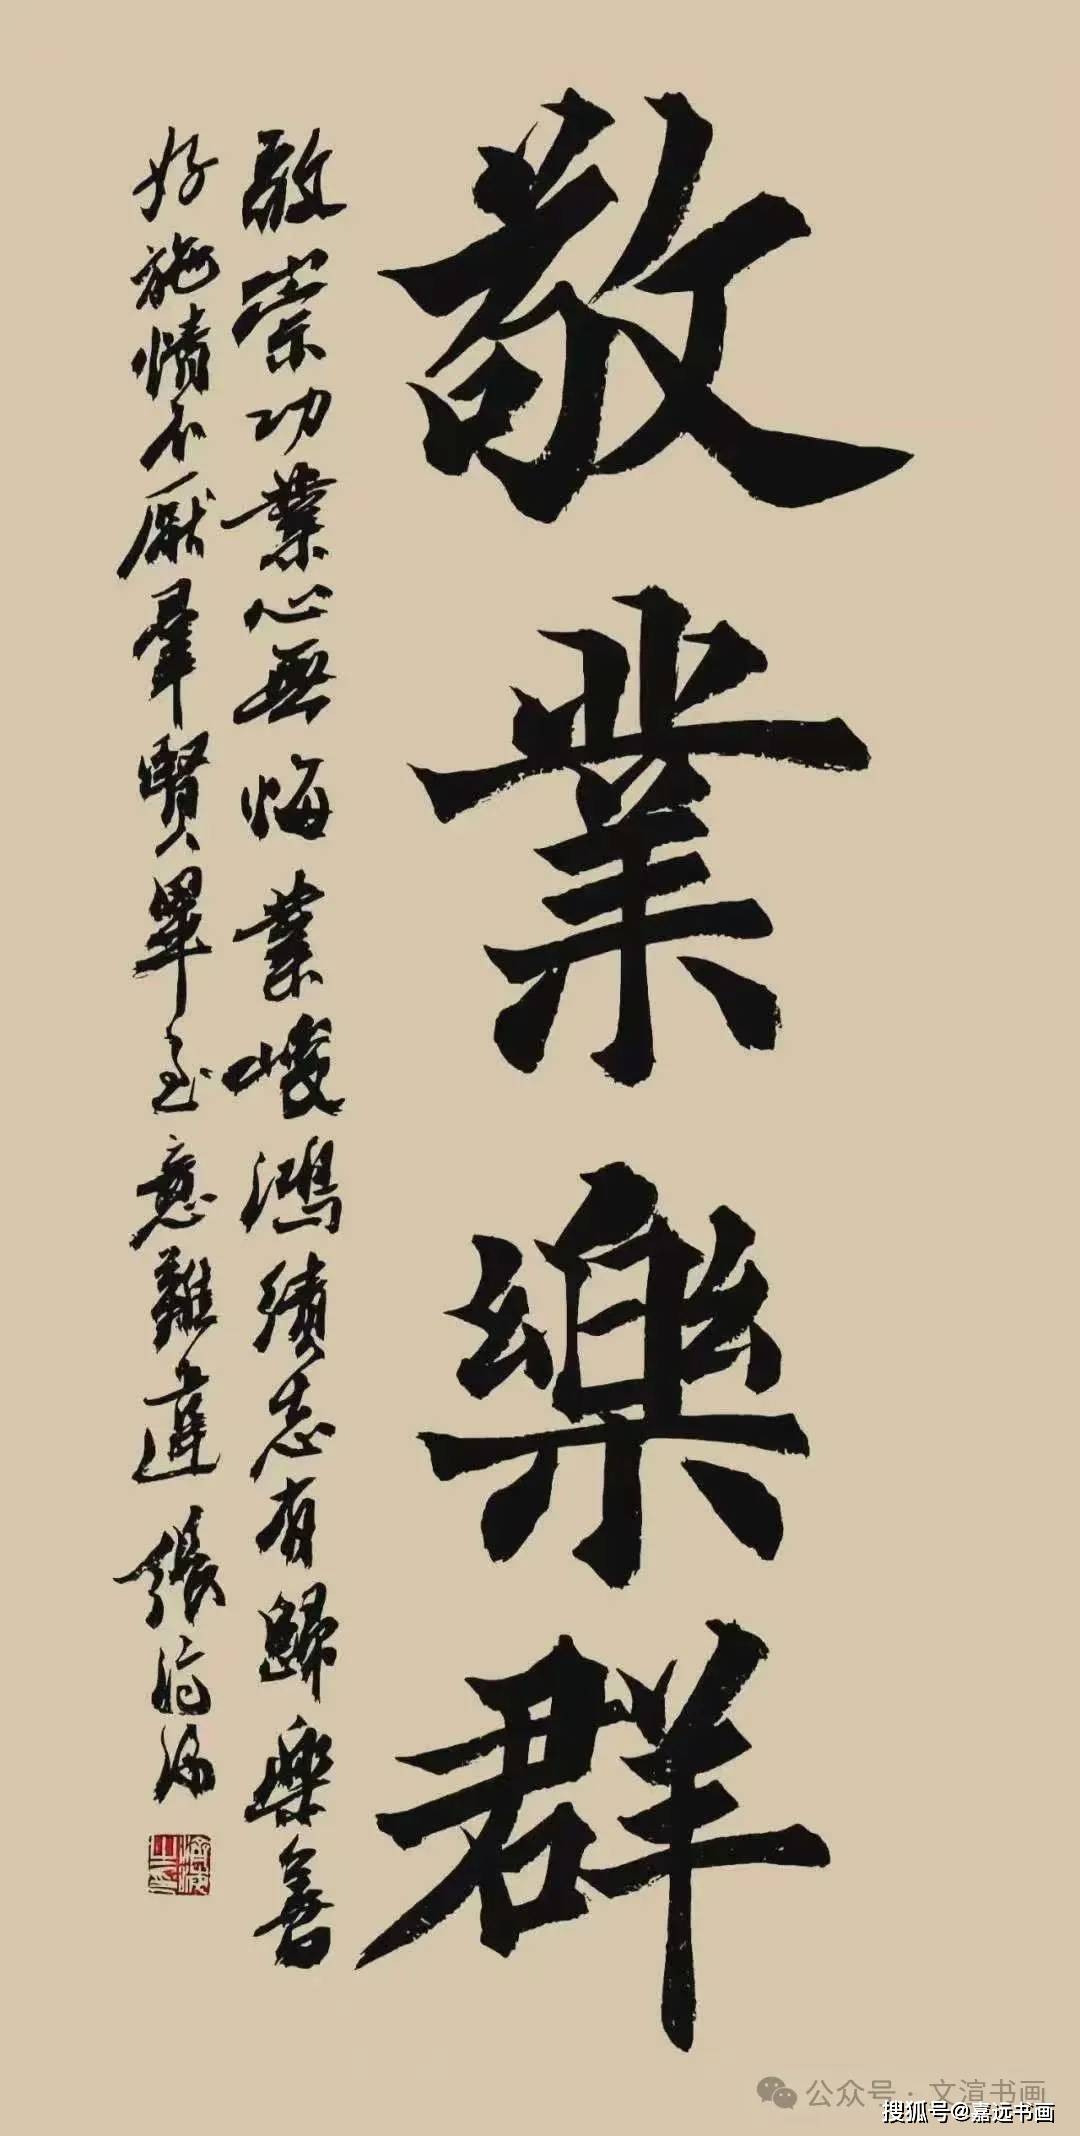 敬業樂群
敬崇功業心無悔業峻鴻績志有歸樂善
好施情不厭羣賢畢至意難違 張濟海
公众号·文渲书画
搜狐号@嘉远书画